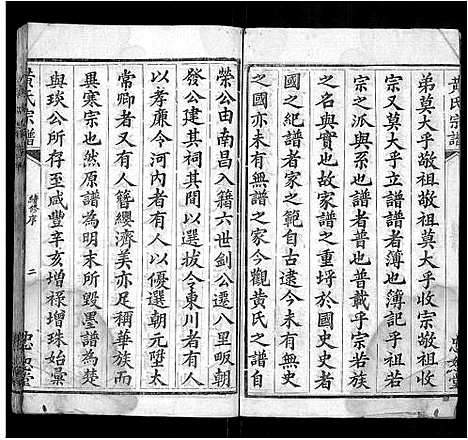 黄氏宗譜
弟莫大乎敬祖敬祖莫大乎收宗敬祖收
宗又莫大乎立譜譜者薄也薄記乎祖若
宗之派與系也譜者普也普載乎宗若族
之名與實也故家之有譜實與國史史者
國之紀譜者家之範自古逮今未有無史
之國亦未有無譜之家今觀黄氏之譜自
榮公由南昌入籍六世劍公遷八里畈朝
發公建其祠其間以選拔令東川者有人
以孝廉令河内者有人以優選朝元陞太
常卿者又有人簪纓濟美亦足稱華族而
畢寒宗也然原譜為明末所毀墨譜為楚
與琰公所存至咸豐辛亥增祿增珠始彙
黄氏宗譜
續修序
二